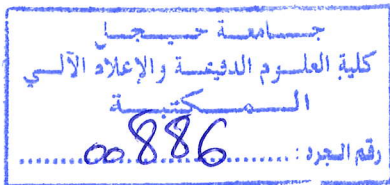 جامعة جيجل
كلية العلوم الدقيقة والإعلام الآلي
المكتبة
رقم الجرد : 00886